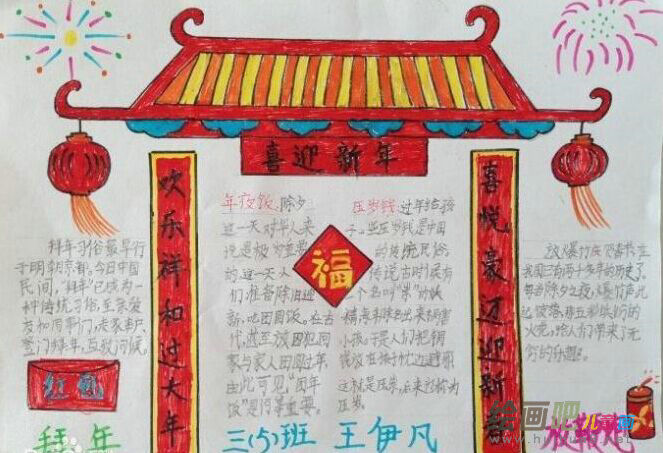 喜迎新年
欢乐祥和过大年
喜悦豪迈迎新春
福
年夜饭:除夕
这一天对华人来
说是极为重要
的.这一天人
们准备除旧迎
新,吃团圆饭。在古
代,
家与家人团圆过年,
由此可见,“团年
饭”是何等重要。
压岁钱:过年给孩
子。压岁钱是中国
的传统民俗,
传说古时候有
一个名叫“祟”的妖
小孩,于是人们把铜
钱放在孩子枕边避邪
这就是压祟,后来被称为
压岁。
拜年习俗最早行
于明朝京都。今日中国
民间,“拜年”已成为一
种传统习俗,至亲爱
友如同事门,走家串户,
登门拜年,互致问候。
放爆竹庆贺春节在
我国已有两千多年的历史了。
每当除夕之夜,爆竹声此
起彼落,那五彩缤纷的
火花,给人们带来了无
穷的乐趣。
红包
拜年
三(5)班 王伊凡
绘画吧